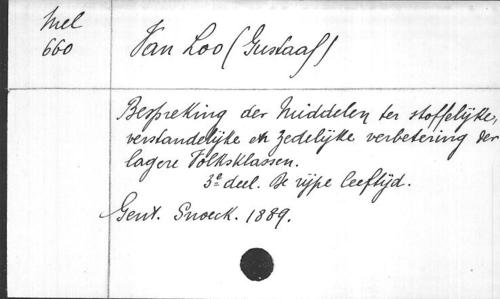 Mel
660
Van Loo (Gustaaf)
Bespreking der Middelen ter stoffelijke,
verstandelijke en zedelijke verbetering der
lagere Volksklassen.
3e deel. De rijpe leeftijd.
Gent. Snoeck. 1889.